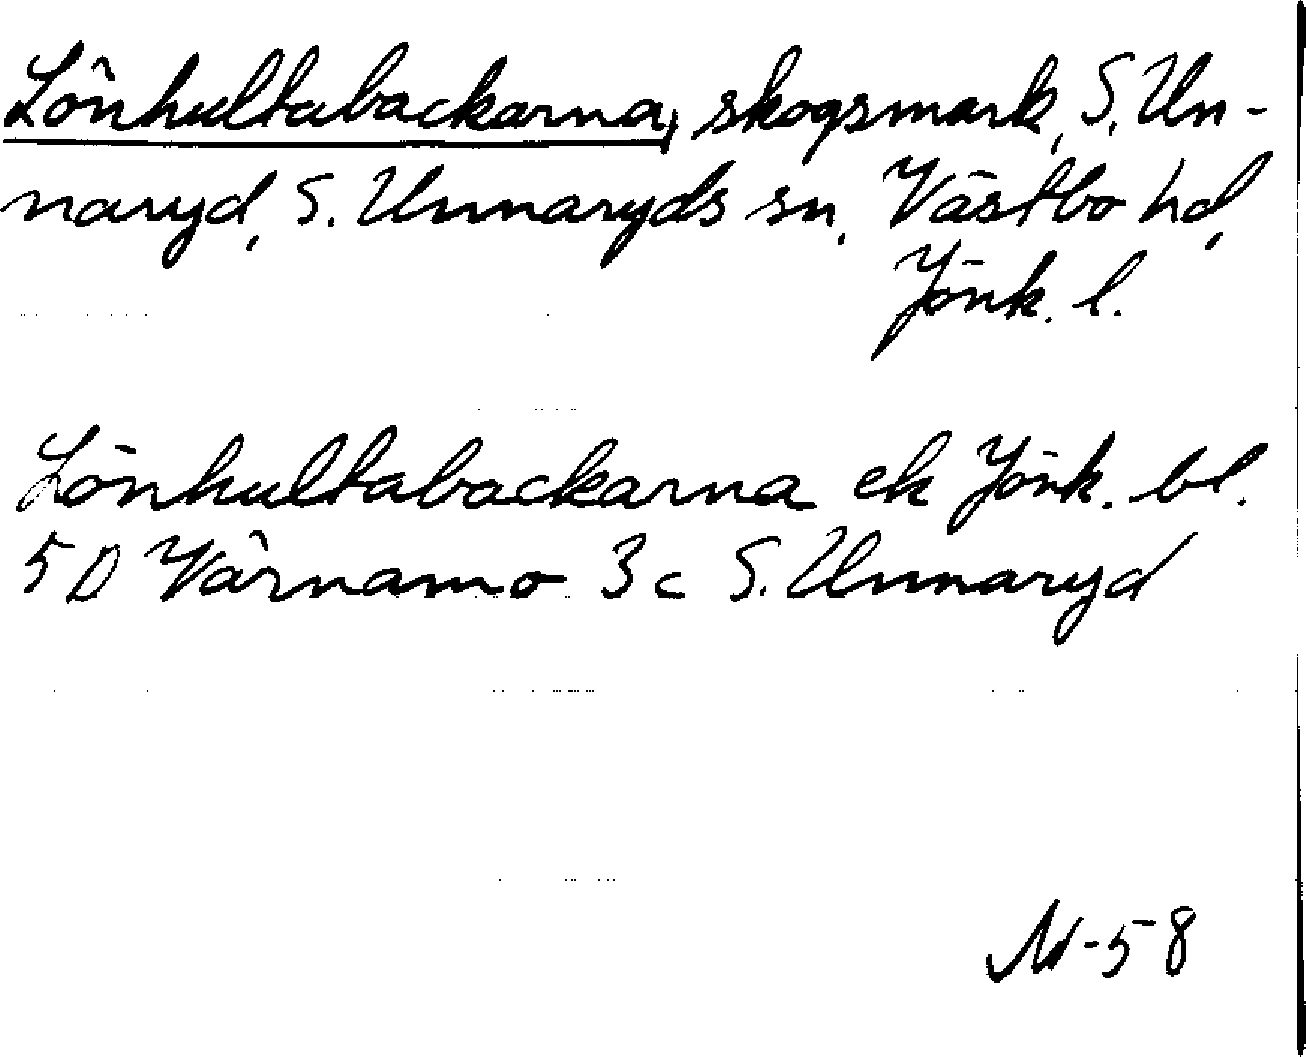 Lönhultabackarna, skogsmark, S. Un-
naryd, S. Unnaryds sn, Västbo hd,
Jönk. l.
Lönhultabackarna ek Jönk. bl.
5 D Värnamo 3 c S. Unnaryd
-58